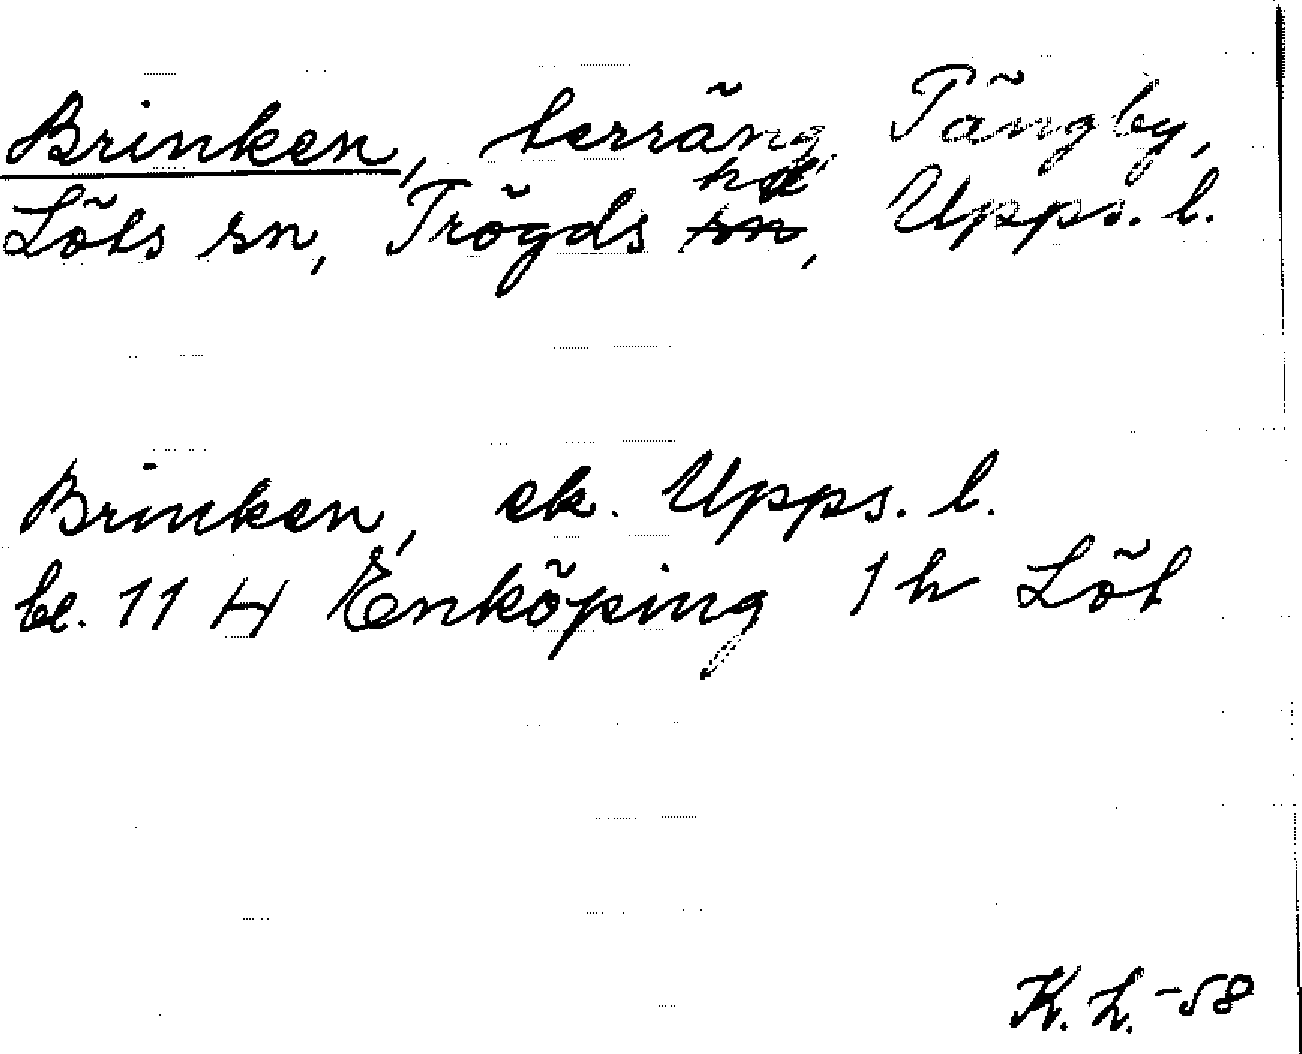 Brinken, terräng, Tängby,
Löts sn, Trögds hd, Upps. l.
Brinken, ek. Upps. l.
be. 11 4 Enköping 1 h Löt
K. L. -58